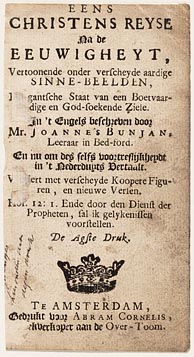 EENS
CHRISTENS REYSE
Na de
EEUWIGHEYT,
Vertoonende onder verscheyde aardige
SINNE-BEELDEN,
gantsche Staat van een Boetvaar-
dige en God-soekende Ziele.
In 't Engels beschreven door
Mr. JOANNES BUNJAN,
Leeraar in Bed-ford.
En nu om des selfs voortreflijkheydt
in 't Nederduyts Vertaalt.
met verscheyde Koopere Figu-
ren, en nieuwe Versen.
12: 1. Ende door den Dienst der
Propheten, sal ik gelykenissen
voorstellen.
De Agste Druk.
TE AMSTERDAM,
Gedrukt voor ABRAM CORNELIS,
verkoper aan de Over-Toom.